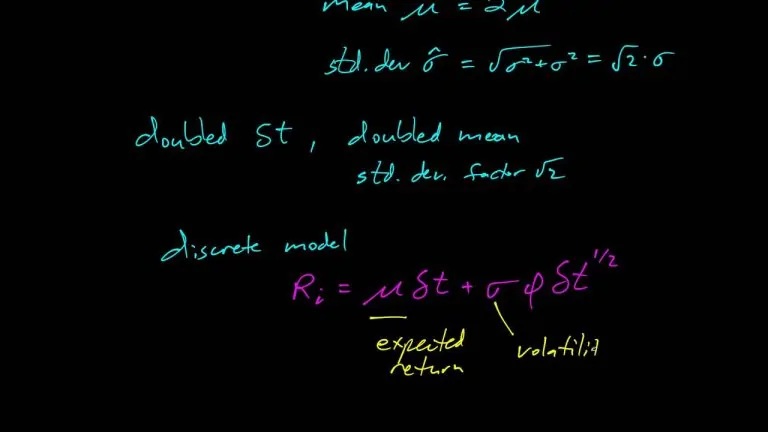 mean μ̂ = 2μ
std.dev σ̂ = √σ²+σ² = √2·σ
doubled δt, doubled mean
std. dev. factor √2
discrete model
Rᵢ = μ δt + σ φ δt^1/2
expected return
volatilit